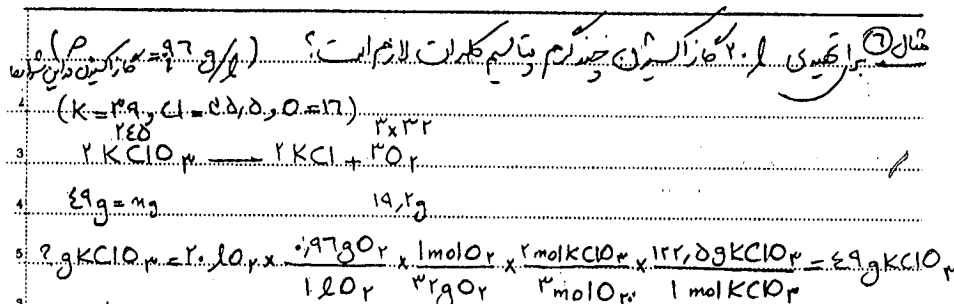 مثال ۶ برای تهیه‌ی ۲۰ l گاز اکسیژن چند گرم پتاسیم کلرات لازم است؟ (۰٫۹۶ g/l = گاز اکسیژن در این شرایط ρ)
(K = ۳۹, Cl = ۳۵,۵, O = ۱۶)
۲۴۵ ۳×۳۲
۲KClO۳ — ۲KCl + ۳O۲
۴۹g = xg ۱۹,۲g
? gKClO۳ = ۲۰ lO۲ × ۰,۹۶gO۲ / ۱ lO۲ × ۱molO۲ / ۳۲gO۲ × ۲molKClO۳ / ۳molO۲ × ۱۲۲,۵gKClO۳ / ۱molKClO۳ = ۴۹gKClO۳